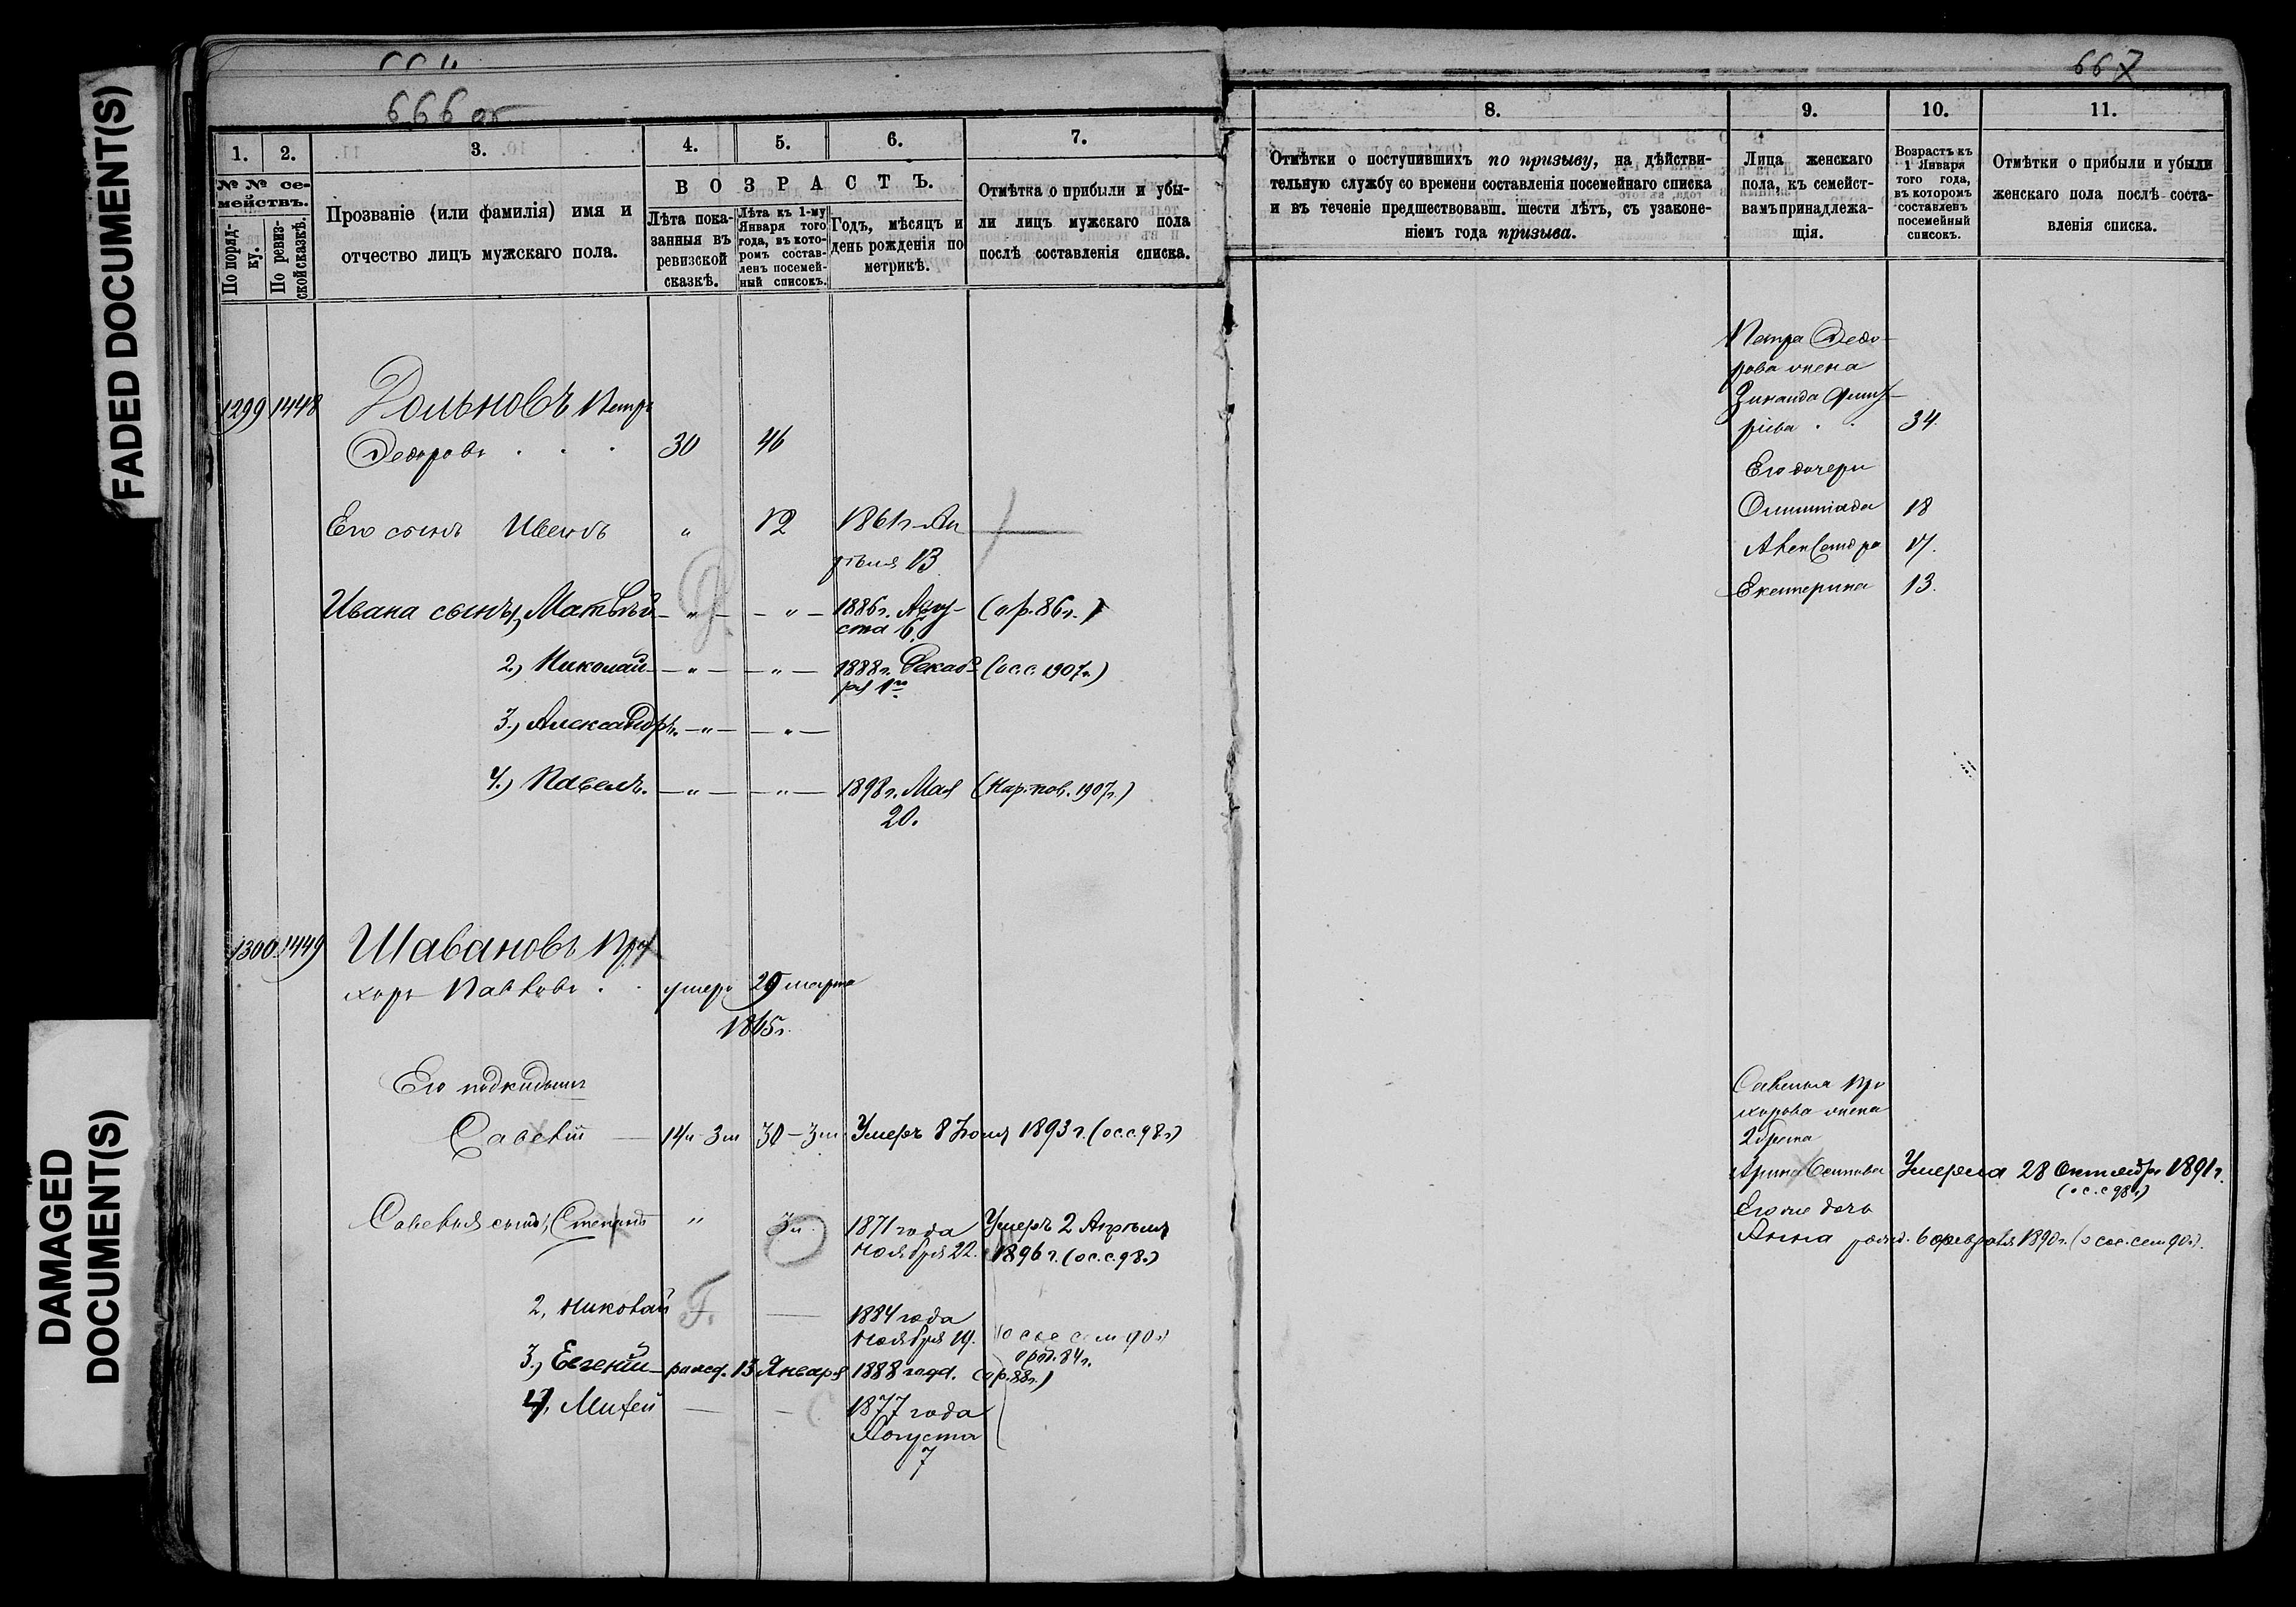 FADED DOCUMENT(S)
DAMAGED
DOCUMENT(S)
666 об
1.
2.
3.
4.
5.
6.
7.
№ № се-
мействъ.
По поряд-
ку.
По ревиз-
ской сказкѣ.
Прозваніе (или фамилія) имя и
отчество лицъ мужскаго пола.
ВОЗРАСТЪ.
Лѣта пока-
занныя въ
ревизской
сказкѣ.
Лѣта къ 1-му
Января того
года, въ кото-
ромъ состав-
ленъ посемей-
ный списокъ.
Годъ, мѣсяцъ и
день рожденія по
метрикѣ.
Отмѣтка о прибыли и убы-
ли лицъ мужскаго пола
послѣ составленія списка.
1299 1448 Дольновъ Петръ
Федоровъ . . . 30 46
Его сынъ Иванъ " 12 1861 г. Ап
рѣля 13
Ивана сынъ 1, Матвѣй — " — — " — 1886 г. Авгу- (о р. 86 г.)
ста 6.
2.) Николай — " — — " — 1888 г. Декаб- (о с. с. 1907 г.)
ря 1го
3.) Александръ. — " — — " —
4.) Павелъ. — " — — " — 1898 г. Мая (Нар. пов. 1907 г.)
20.
1300 1449 Шавановъ Про
хоръ Павловъ . . умеръ 29 марта
1865 г.
Его подкидышъ
Савелій — 14 л. 3 м 30 — 3 м Умеръ 8 Іюля 1893 г. (о с. с. 98 г.)
Савелья сынъ 1, Степанъ " 3 м. 1871 года Умеръ 2 Апрѣля
ноября 22. 1896 г. (о с. с. 98 г.)
2, Николай Г. — 1884 года
Ноября 19. (о сос сем 90 г.)
о род. 84 г.
3.) Евгеній — рожд. 13 Января 1888 года. (о р. 88 г.)
4, Михей — — 1877 года
Августа
7
667
8.
9.
10.
11.
Отмѣтки о поступившихъ по призыву, на дѣйстви-
тельную службу со времени составленія посемейнаго списка
и въ теченіе предшествовавш. шести лѣтъ, съ узаконе-
ніемъ года призыва.
Лица женскаго
пола, къ семейст-
вамъ принадлежа-
щія.
Возрастъ къ
1 Января
того года,
въ которомъ
составленъ
посемейный
списокъ.
Отмѣтки о прибыли и убыли
женскаго пола послѣ соста-
вленія списка.
Петра Федо-
рова жена
Зинаида
. . 34.
Его дочери
Олимпіада 18
Александра 17.
Екатерина 13.
Савелья Про
хорова жена
2 брака
Арина Осипова Умерла 28 Октября 1891 г.
(о с. с 98 г.)
Его же дочь
Анна рожд. 6 февраля 1890 г. (о сос. сем 90 г.).